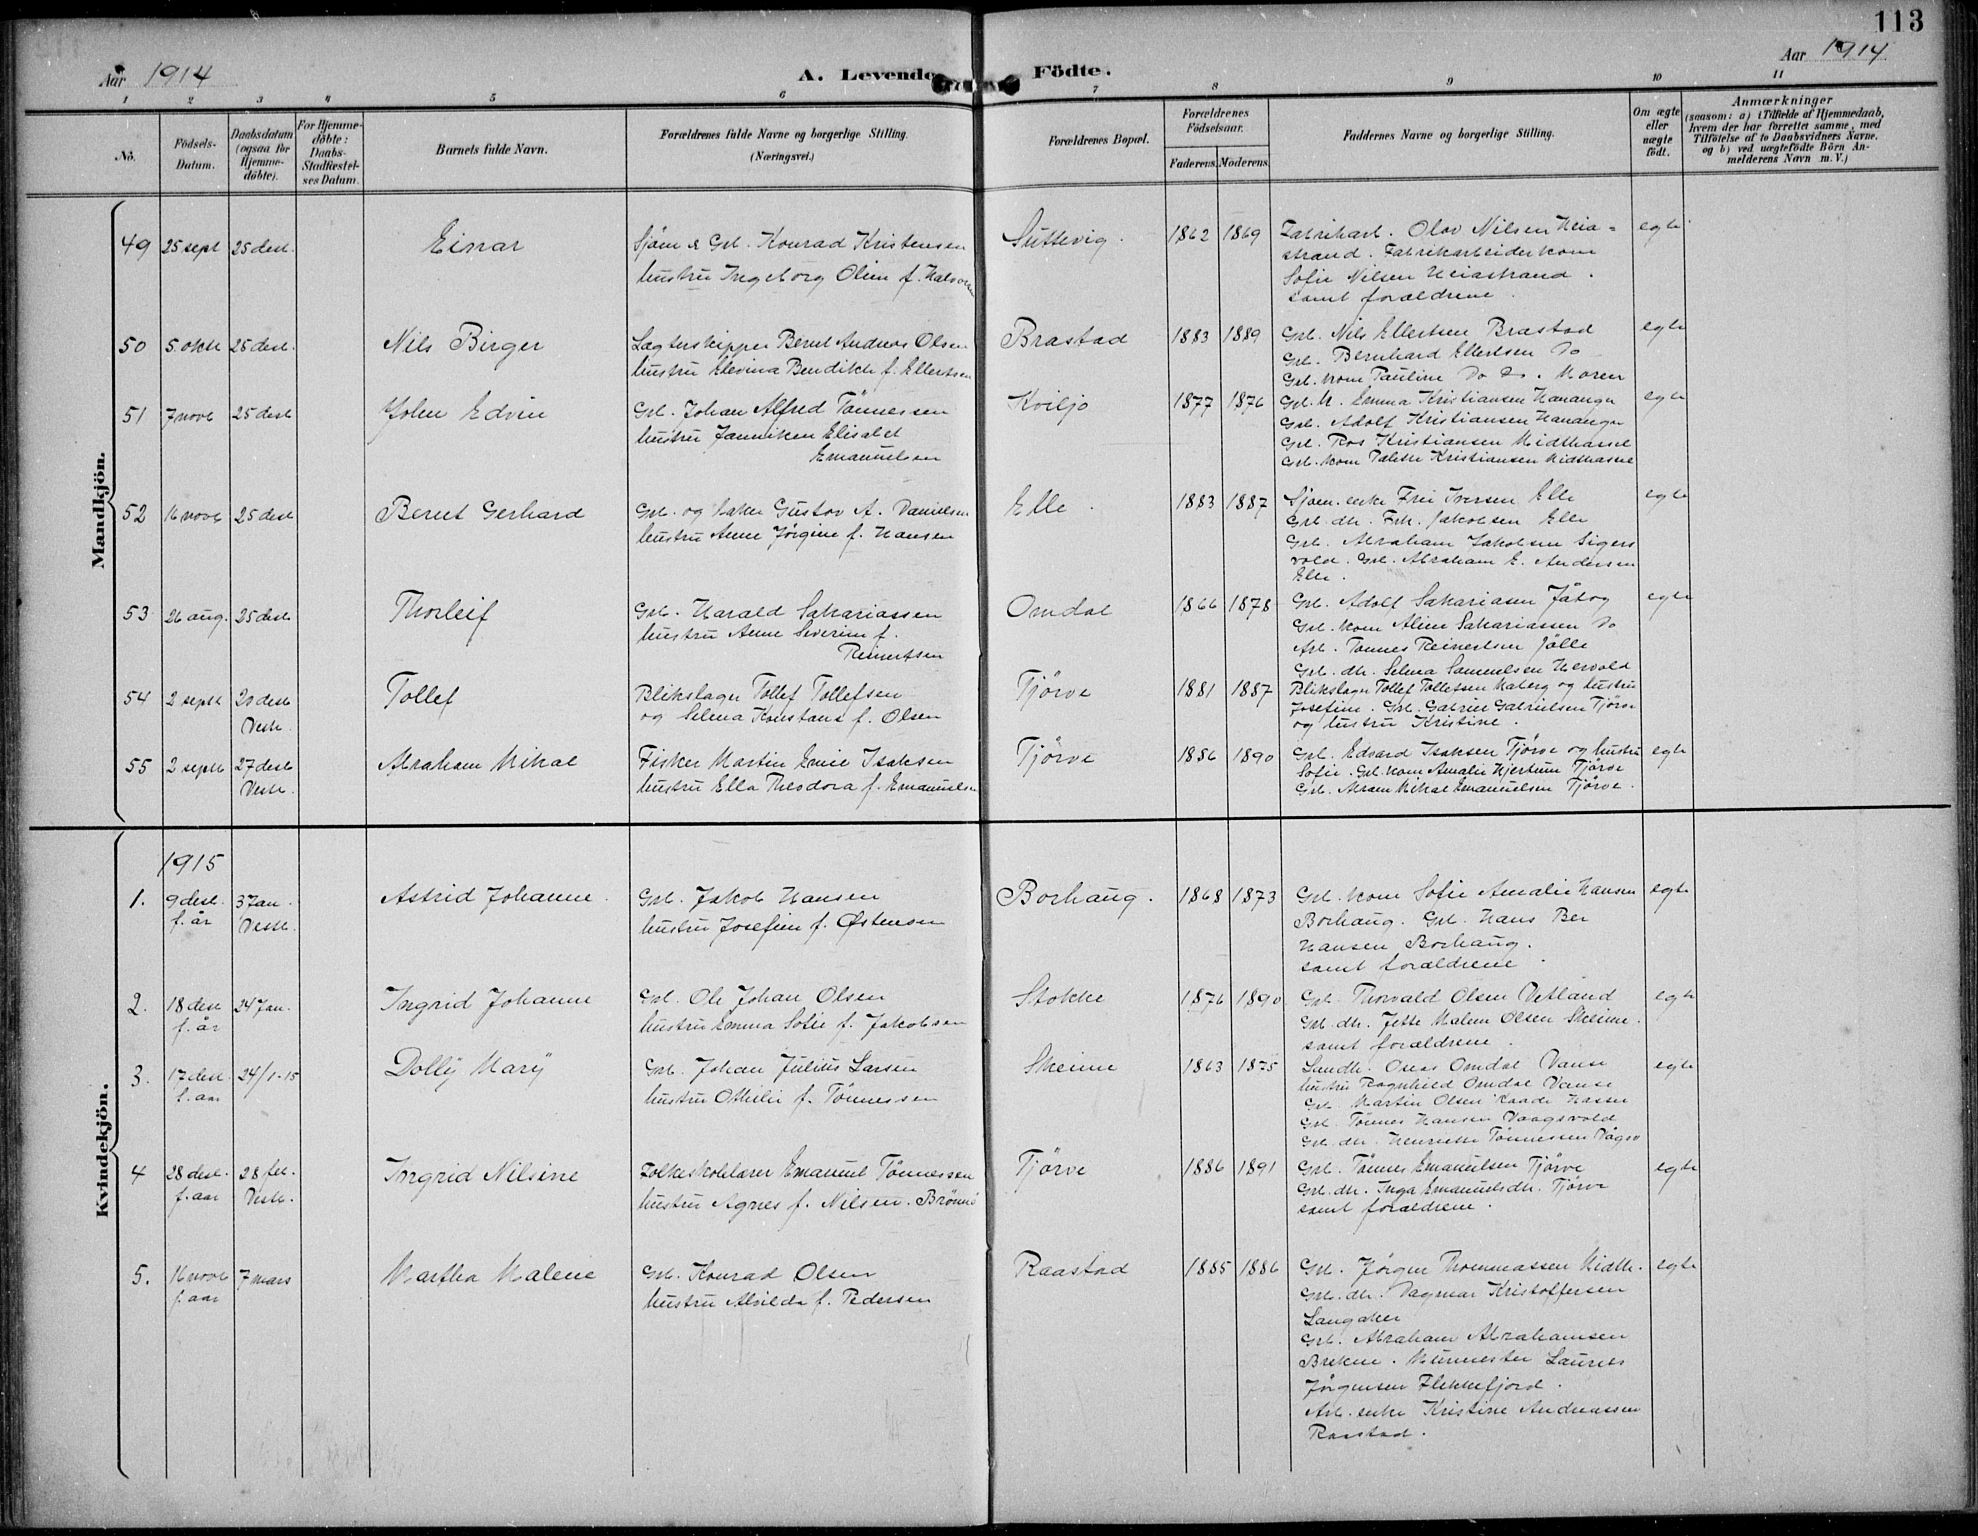 113
Aar 1914
A. Levende Födte.
Aar 1914
1 2 3 4 5 6 7 8 9 10 11
Nö.
Födsels-Datum.
Daabsdatum (ogsaa for Hjemme-döbte).
For Hjemme-döbte: Daabs-Stadfæstel-ses Datum.
Barnets fulde Navn.
Forældrenes fulde Navne og borgerlige Stilling. (Næringsvei.)
Forældrenes Bopæl.
Forældrenes Födselsaar.
Faderens. Moderens.
Faddernes Navne og borgerlige Stilling.
Om ægte eller uægte födt.
Anmærkninger
(saasom: a) i Tilfælde af Hjemmedaab,
hvem der har forrettet samme, med
Tilföielse af to Daabsvidners Navne.
og b) ved uægtefödte Börn An-
melderens Navn m. V.)
Mandkjön.
49 25 sept 25 des. Einar
Sjöm & Grb. Konrad Kristensen
hustru Ingeborg Oline f. Halvorsen
1862 1869
Fabrikarb. Olav Nilsen Heia=
strand. Fabrikarbeiderkone
Sofie Nilsen Heiastrand.
samt forældrene.
egte
50 5. okt 25 des. Nils Birger
Lægterskipper Bernt Andreas Olsen
hustru Elevina Bendikte f. Ellertsen
Brastad 1883 1889
Grb. Nils Ellertsen Brastad
Grb. Bernhard Ellertsen Do
Grb. kone Pauline Do Do. Maren
egte
51 7 novb 25 desb John Edvin
Grb. Johan Alfred Tönnessen
hustru Janniken Elisabet
Emanuelsen
Kviljo 1877 1876
Grb. k. Emma Kristiansen Hananger
Grb. Adolf Kristiansen Hananger
Grb. Kristiansen Midthassel
Grb. kone Kristiansen Midthassel
egte
52 16 novb 25 desb Bernt Gerhard
Grb. og baker Gustav A. Danielsen
hustru Anne Jörgine f. Hansen
Elle. 1883 1887
Sjöm. enke Iversen Elle
Grb. dtr. Jakobsen Elle
Grb. Abraham Jakobsen Sigers
vold. Grb. Abraham E. Andersen
Elle.
egte
53 26 aug. 25 desb Thorleif
Grb. Harald Sakariassen
hustru Anne Severine f.
Reinertsen
Omdal 1866 1878
Grb. Adolf Sakariasen
Grb. kone Aline Sakariassen Do
Arb. Tönnes Reinertsen Jölle
Grb. dtr. Selma Samuelsen Hervold
egte
54 2 septb 20 desb Vestb. Tollef
Blikslager Tollef Tollefsen
og Selma Konstanse f. Olsen
Tjörve 1881 1887
Blikslager Tollef Tollefsen Maberg og hustru
Josefine. Grb. Gabriel Gabrielsen Tjörve
og hustru Kristine.
55 2 septb 27 desb Vestb. Abraham Mikal
Fisker Martin Emil Isaksen
hustru Ella Theodora f. Emanuelsen
Tjörve 1886 1890
Grb. Edvard Isaksen Tjörve og hustru
Sofie. Grb. kone Amalie Tjörve
Grb. Abram Mikal Emanuelsen Tjörve.
egte
Kvindekjön.
1915
1. 9 desb. f. år 3 Jan. Vestb. Astrid Johanne.
Grb. Jakob Hansen
hustru Josefine f. Östensen
Borhaug. 1868 1873
Grb. kone Sofie Amalie Hansen
Borhaug. Grb. Hans Ber
Hansen Borhaug.
samt forældrene.
egte
2. 18 des f. år 24 Jan. Ingrid Johanne
Grb. Ole Johan Olsen
hustru Emma Sofie f. Jakobsen
Stokke 1876 1890
Grb. Thorvald Olsen Vetland
Grb. dtr. Jette Malene Olsen Skeime.
samt forældrene.
egte
3. 17 des. f. aar 24/1-15 Dolly Mary
Grb. Johan Julius Larsen
hustru Othilie f. Tönnessen
Skeime 1863 1875
Landh. Omdal Vanse
hustru Ragnhild Omdal Vanse
Grb. Martin Olsen Hassel
Grb. Tönnes Hansen Vaagsvold
Grb. dtr. Henriette Tönnessen Vågsv
egte
4 28 des. f. aar 28 feb. Vestb. Ingrid Nilsine
Folkeskolelærer Emanuel Tönnessen
hustru Agnes f. Nilsen. Brönnö
Tjörve 1886 1891
Grb. Tönnes Emanuelsen Tjörve
Grb. dtr. Inga Emanuelsdtr. Tjörve
samt forældrene.
egte
5. 16 novb f. aar 7 mars Martha Malene
Grb. Konrad Olsen
hustru Alvilde f. Pedersen
Raastad 1885 1886
Grb. Jörgen Thommassen Midth.
Grb. dtr. Dagmar Kristoffersen
Langaker
Grb. Abraham Abrahamsen
Brekne. Murmester Laurits
Jörgensen Flekkefjord.
Arb. enke Kristine Andreassen
Raastad.
egte